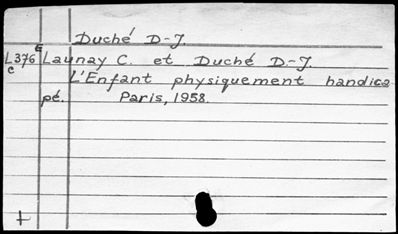 Duché D-J.
L376 E Launay C. et Duché D.-J.
c L'Enfant physiquement handica
pé. Paris, 1958.